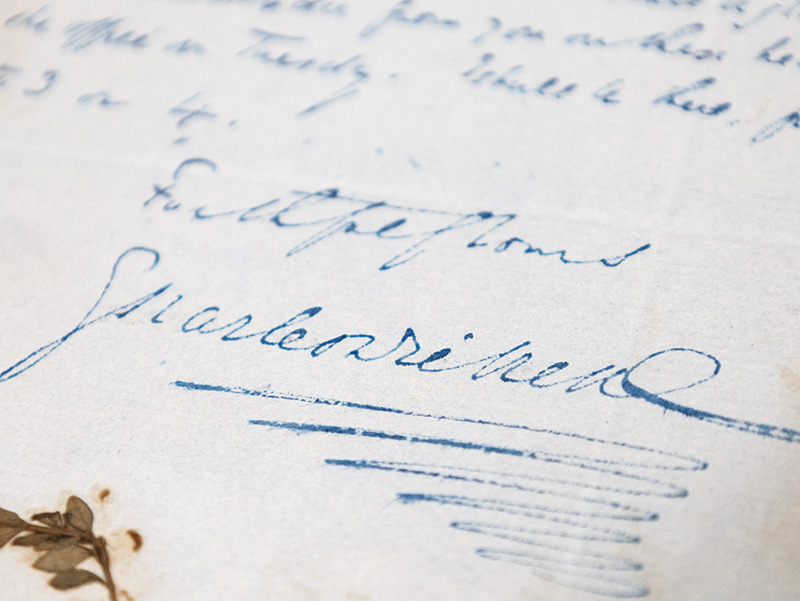 from you on these
the office on Tuesday. I shall be here,
3 or 4.
Faithfully Yours
Charles Dickens